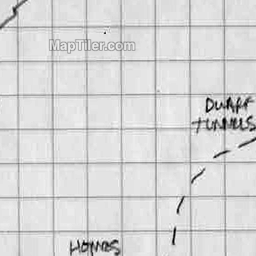 MapTiler.com
DWARF
TUNNELS
HOMES